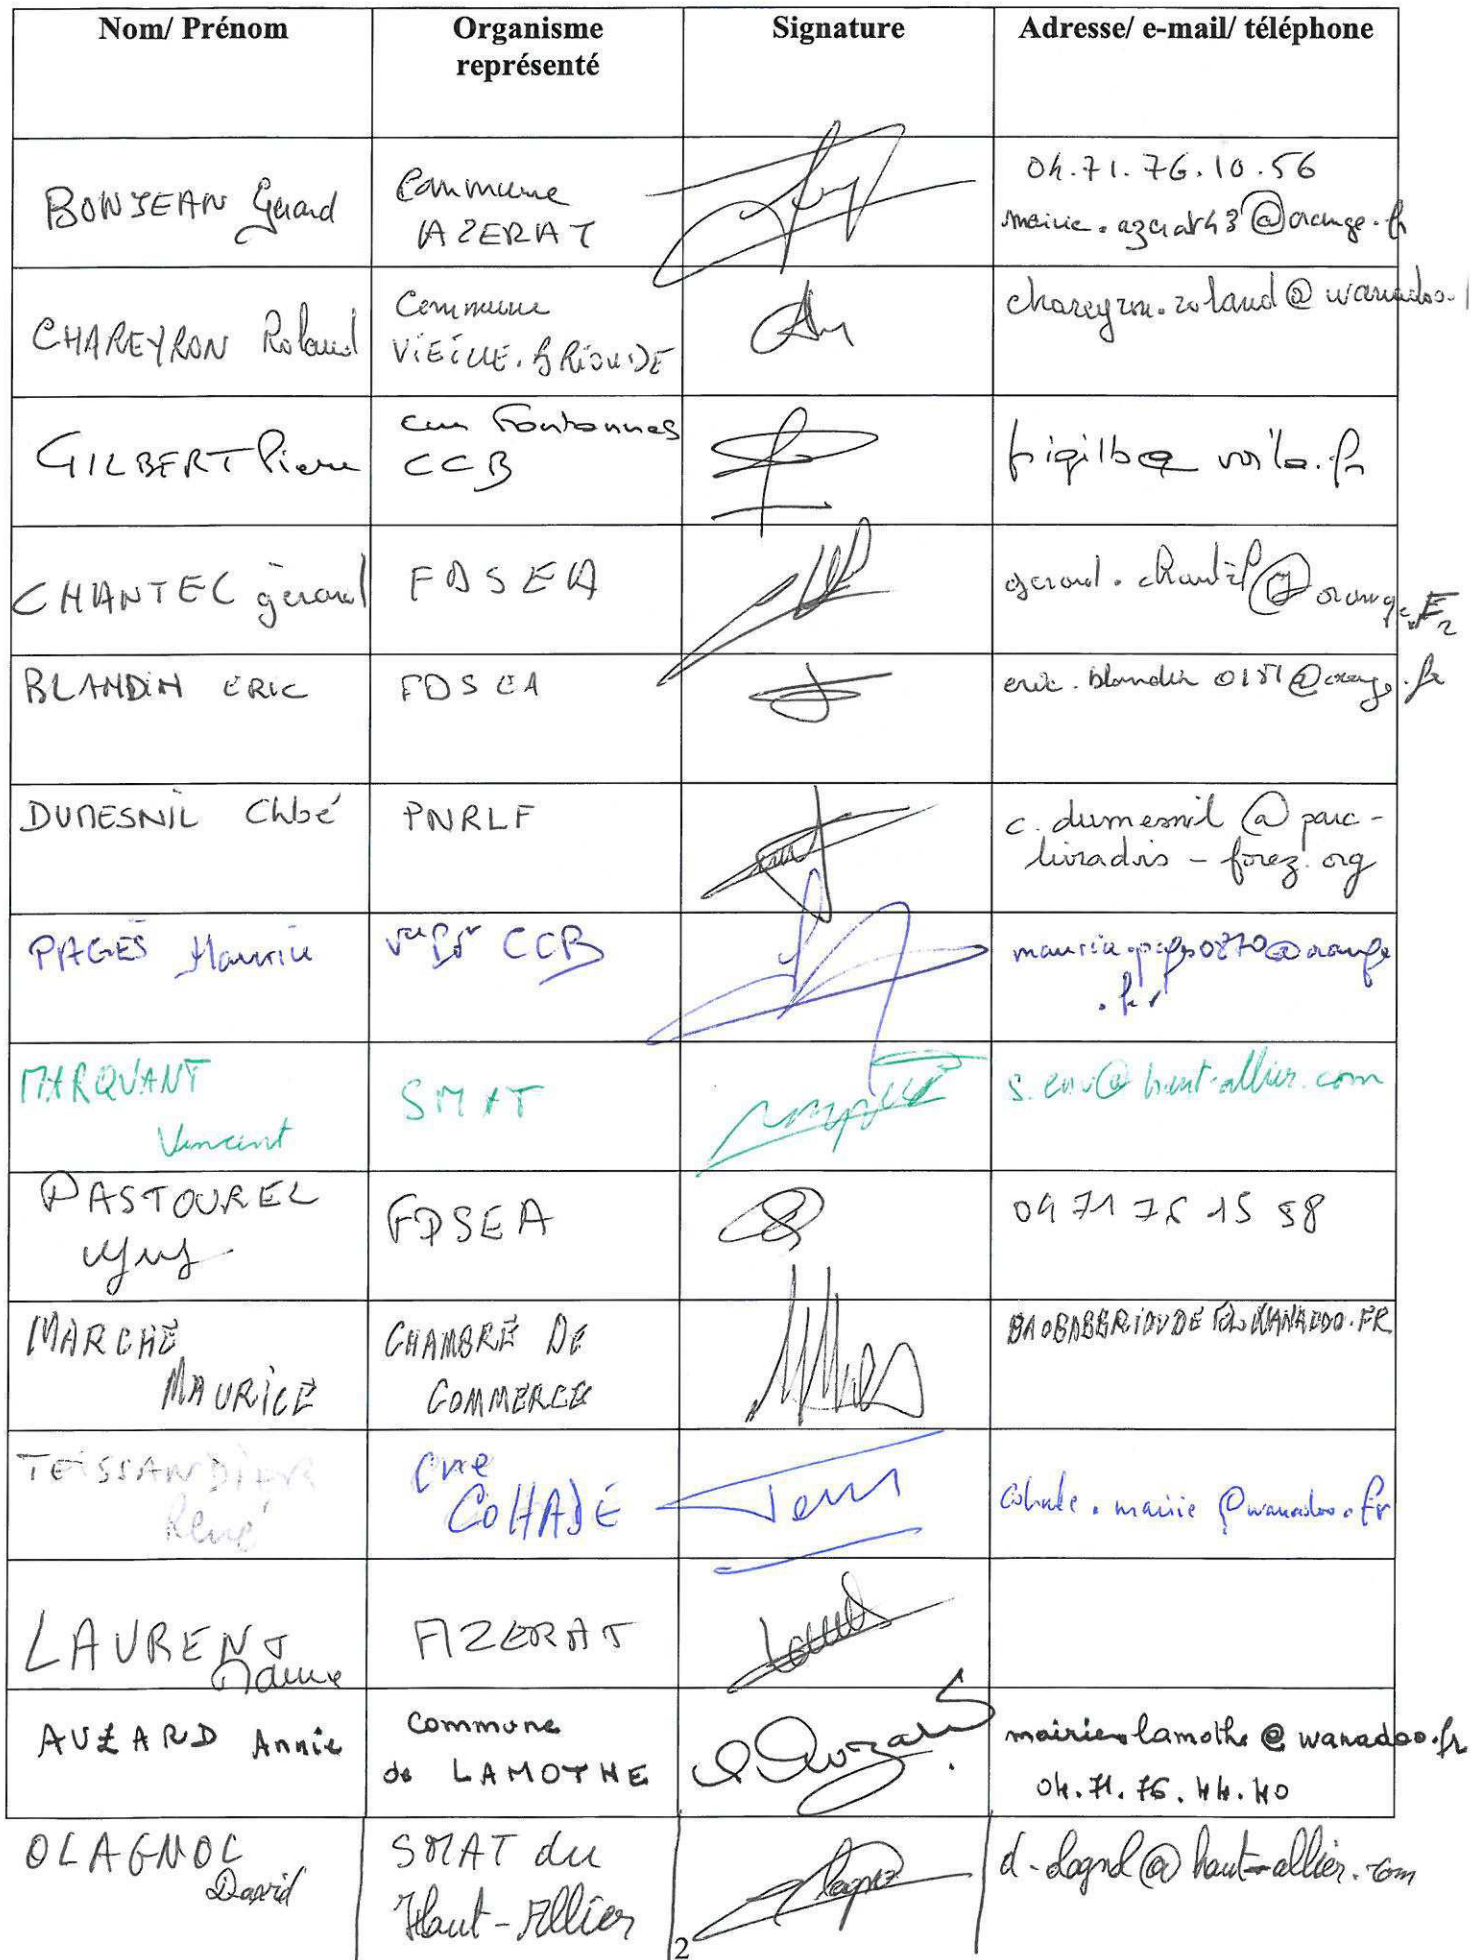 Nom/ Prénom
Organisme
représenté
Signature
Adresse/ e-mail/ téléphone
BONJEAN Gérard
Commune
AZERAT
04.71.76.10.56
mairie.azerat43@orange.fr
CHAREYRON Roland
Commune
VIEILLE.BRIOUDE
chareyron.roland@wanadoo.
GILBERT Pierre
Fontannes
CCB
pigilb@voila.fr
CHANTEL gérard
FDSEA
gerard.chantel@orange.
BLANDIN ERIC
FDSEA
eric.blandin0181@orange.fr
DUMESNIL Chloé
PNRLF
c.dumesnil@parc-
livradois-forez.org
PAGES Maurice
CCB
maurice.pages0870@orange
.fr
MARQUANT
Vincent
SMAT
s.env@haut-allier.com
PASTOUREL
FDSEA
04 71 76 15 98
MARCHE
MAURICE
CHAMBRE DE
COMMERCE
TEISSANDIER
René
Cne
COHADE
cohade.mairie@wanadoo.fr
LAURENT
AZERAT
AUZARD Annie
commune
de LAMOTHE
mairie.lamothe@wanadoo.fr
04.71.76.44.40
OLAGNOL
David
SMAT du
Haut-Allier
d-olagnol@haut-allier.com
2